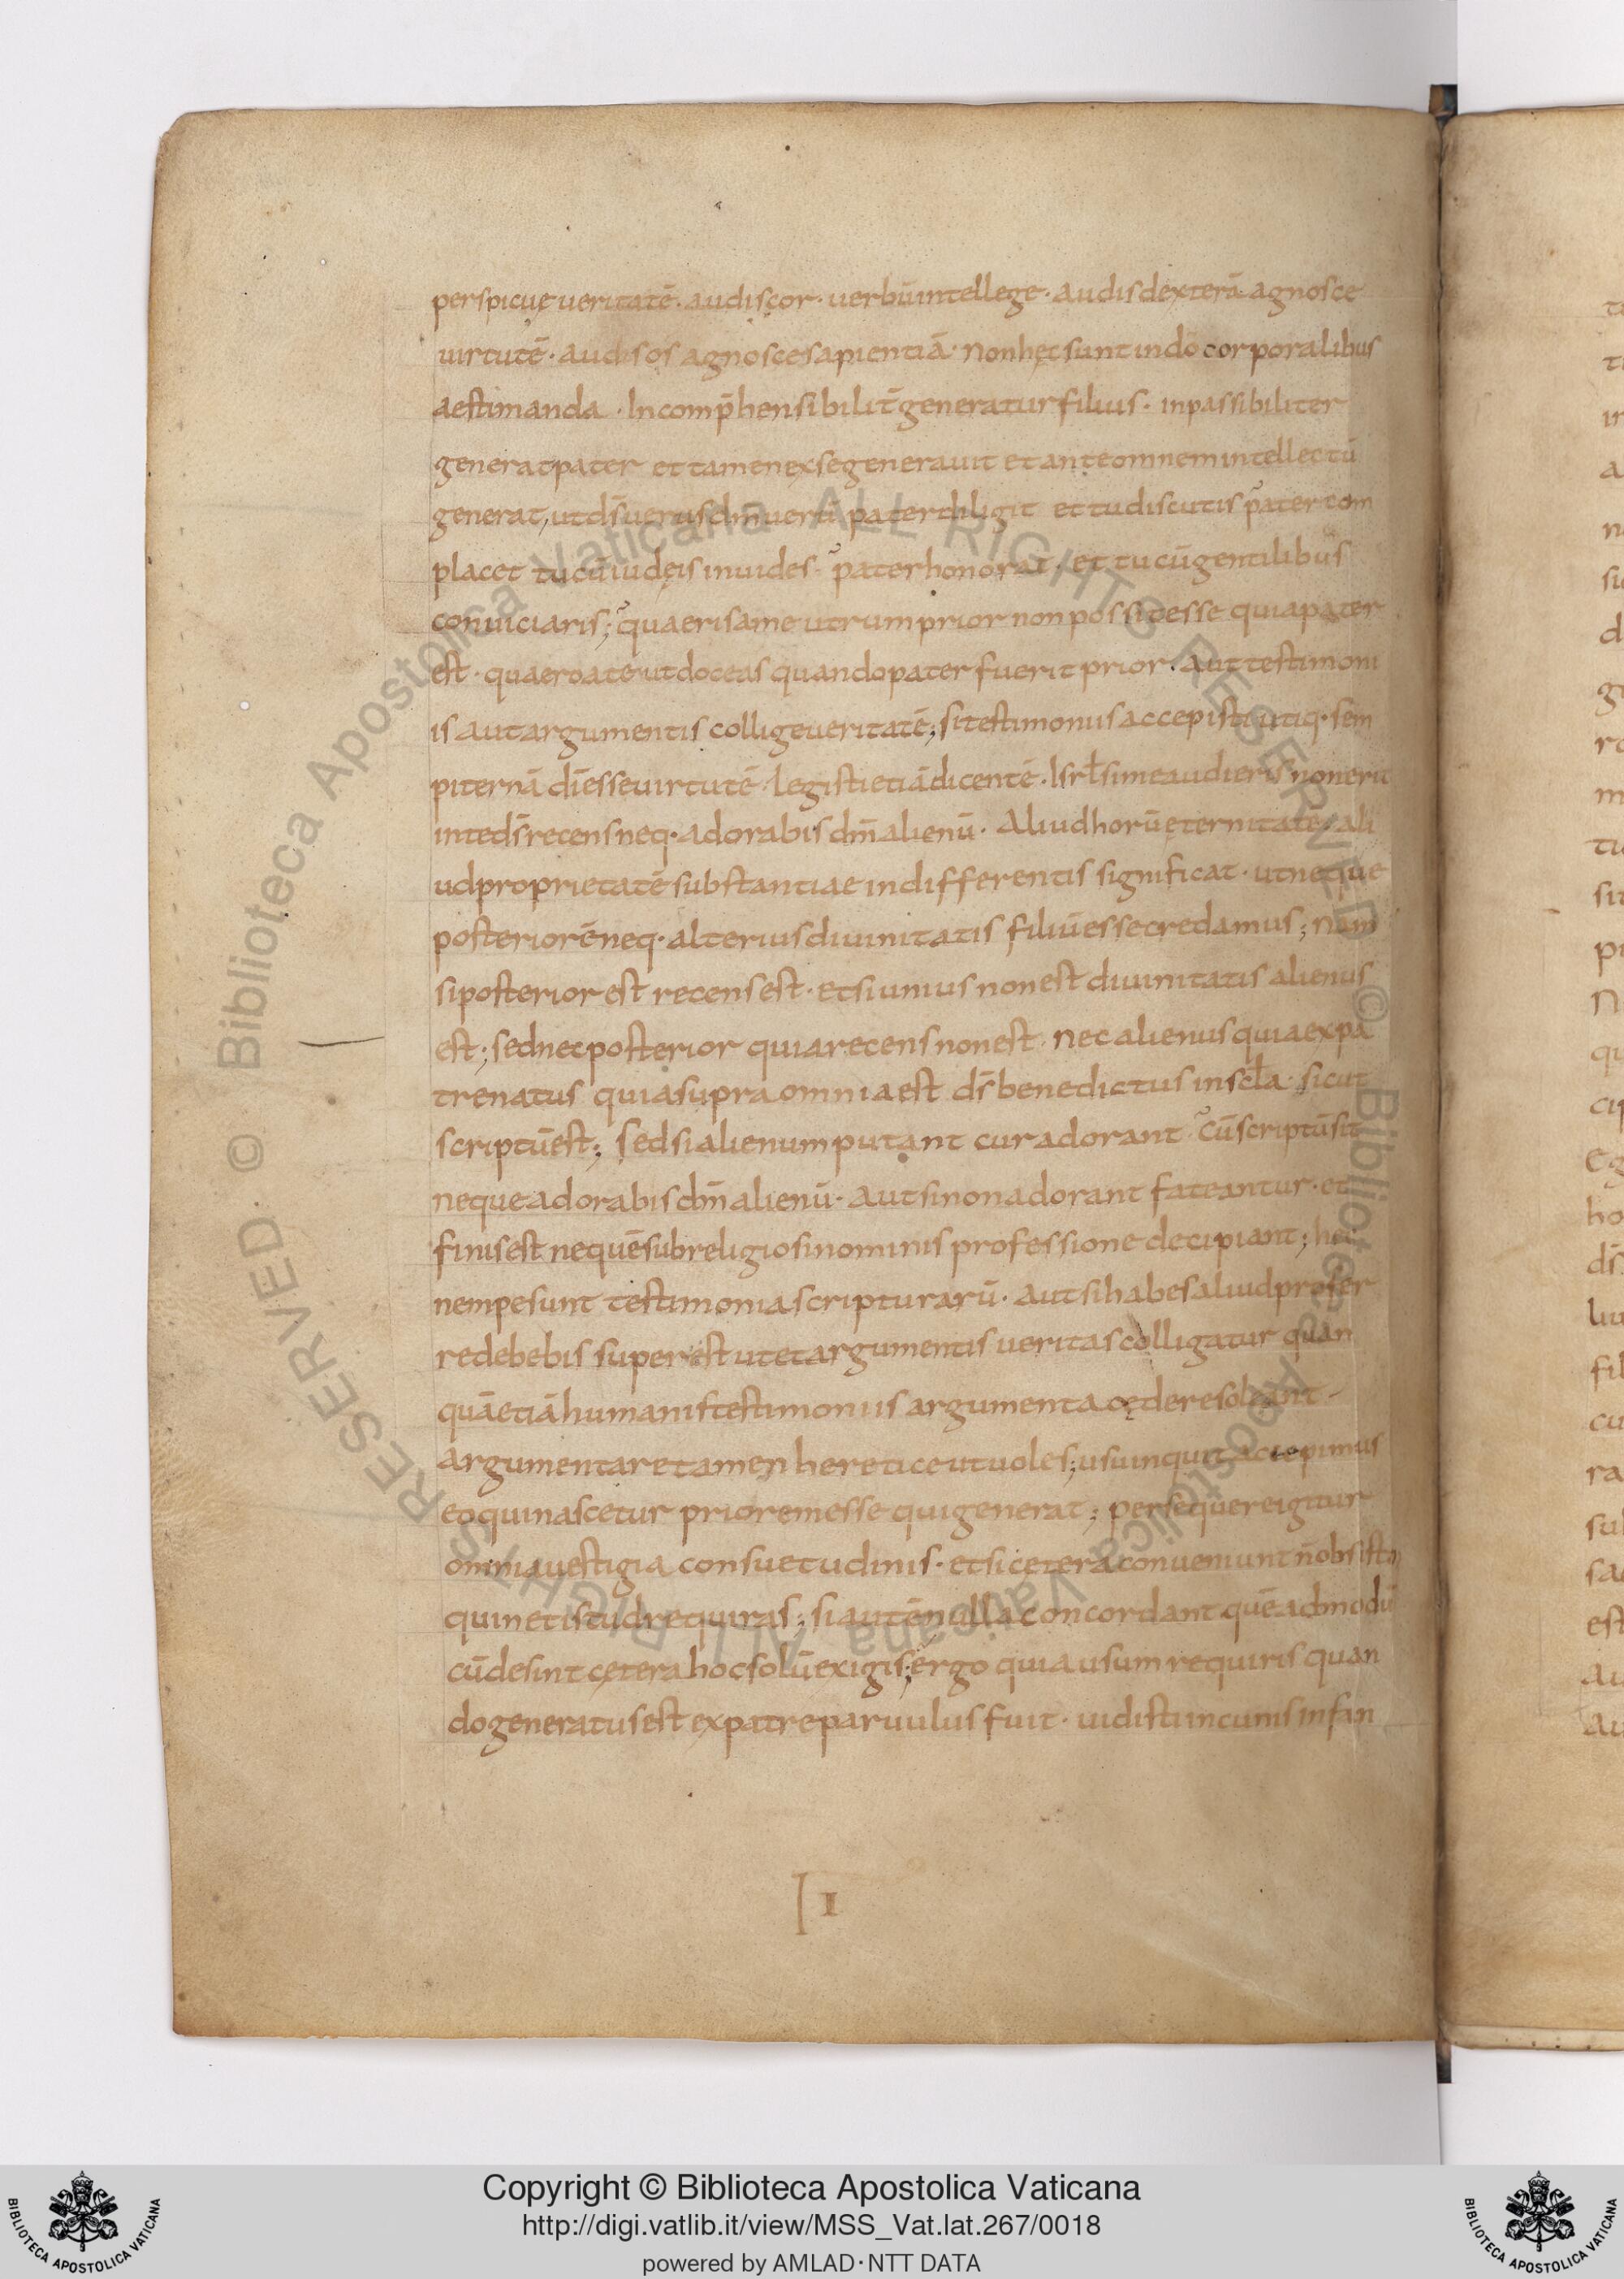 perspicuę ueritatē · audis cor · uerbū intellege · audis dexterā agnosce
uirtutē · audis os agnosce sapientiā · Non hęc sunt in dō corporalibus
aestimanda · Incomp̄hensibilit̄ generatur filius · inpassibiliter
generat pater et tamen ex se generauit et ante omnem intellectū
generat, ut ds̄ uerus dm̄ uerū pater diligit et tu discutis pater com
placet tu cū iudęis inuides · pater honorat · et tu cū gentilibus
conuiciaris; quaeris a me utrum prior non possit esse quia pater
est · quaero a te ut doceas quando pater fuerit prior · aut testimoni
is aut argumentis collige ueritatē; si testimoniis accepisti utiq· sem
piternā dī esse uirtutē · legisti etiā dicentē · Isrl̄ si me audieris non erit
in te ds̄ recens neq· adorabis dm̄ alienū · Aliud horū ęternitatē · ali
ud proprietatē substantiae indifferentis significat · ut neque
posteriorē neq· alterius diuinitatis filiū esse credamus; Nam
si posterior est recens est · et si unius non est diuinitatis alienus
est; sed nec posterior quia recens non est · nec alienus quia ex pa
tre natus quia supra omnia est ds̄ benedictus in scl̄a · sicut
scriptū est; Sed si alienum putant cur adorant · cū scriptū sit
neque adorabis dm̄ alienū · aut si non adorant fateantur · et
finis est ne quē sub religiosi nominis professione decipiant; hęc
nempe sunt testimonia scripturarū · aut si habes aliud profer
re debebis superest ut et argumentis ueritas colligatur quan
quā etiā humanis testimoniis argumenta cędere soleant
argumentare tamen heretice ut uoles; usu inquit accepimus
eo qui nascetur priorem esse qui generat; persequere igitur
omnia uestigia consuetudinis · et si cetera conueniunt n̄ obsisto
quin et istud requiras; si autē nulla concordant quē admodū
cū desint cętera hoc solū exigis; ergo quia usum requiris quan
do generatus est ex patre paruulus fuit · uidisti in cunis infan
I
© Biblioteca Apostolica Vaticana ALL RIGHTS RESERVED
© Biblioteca Apostolica Vaticana ALL RIGHTS RESERVED ·
Copyright © Biblioteca Apostolica Vaticana
http://digi.vatlib.it/view/MSS_Vat.lat.267/0018
powered by AMLAD · NTT DATA
BIBLIOTECA APOSTOLICA VATICANA
BIBLIOTECA APOSTOLICA VATICANA